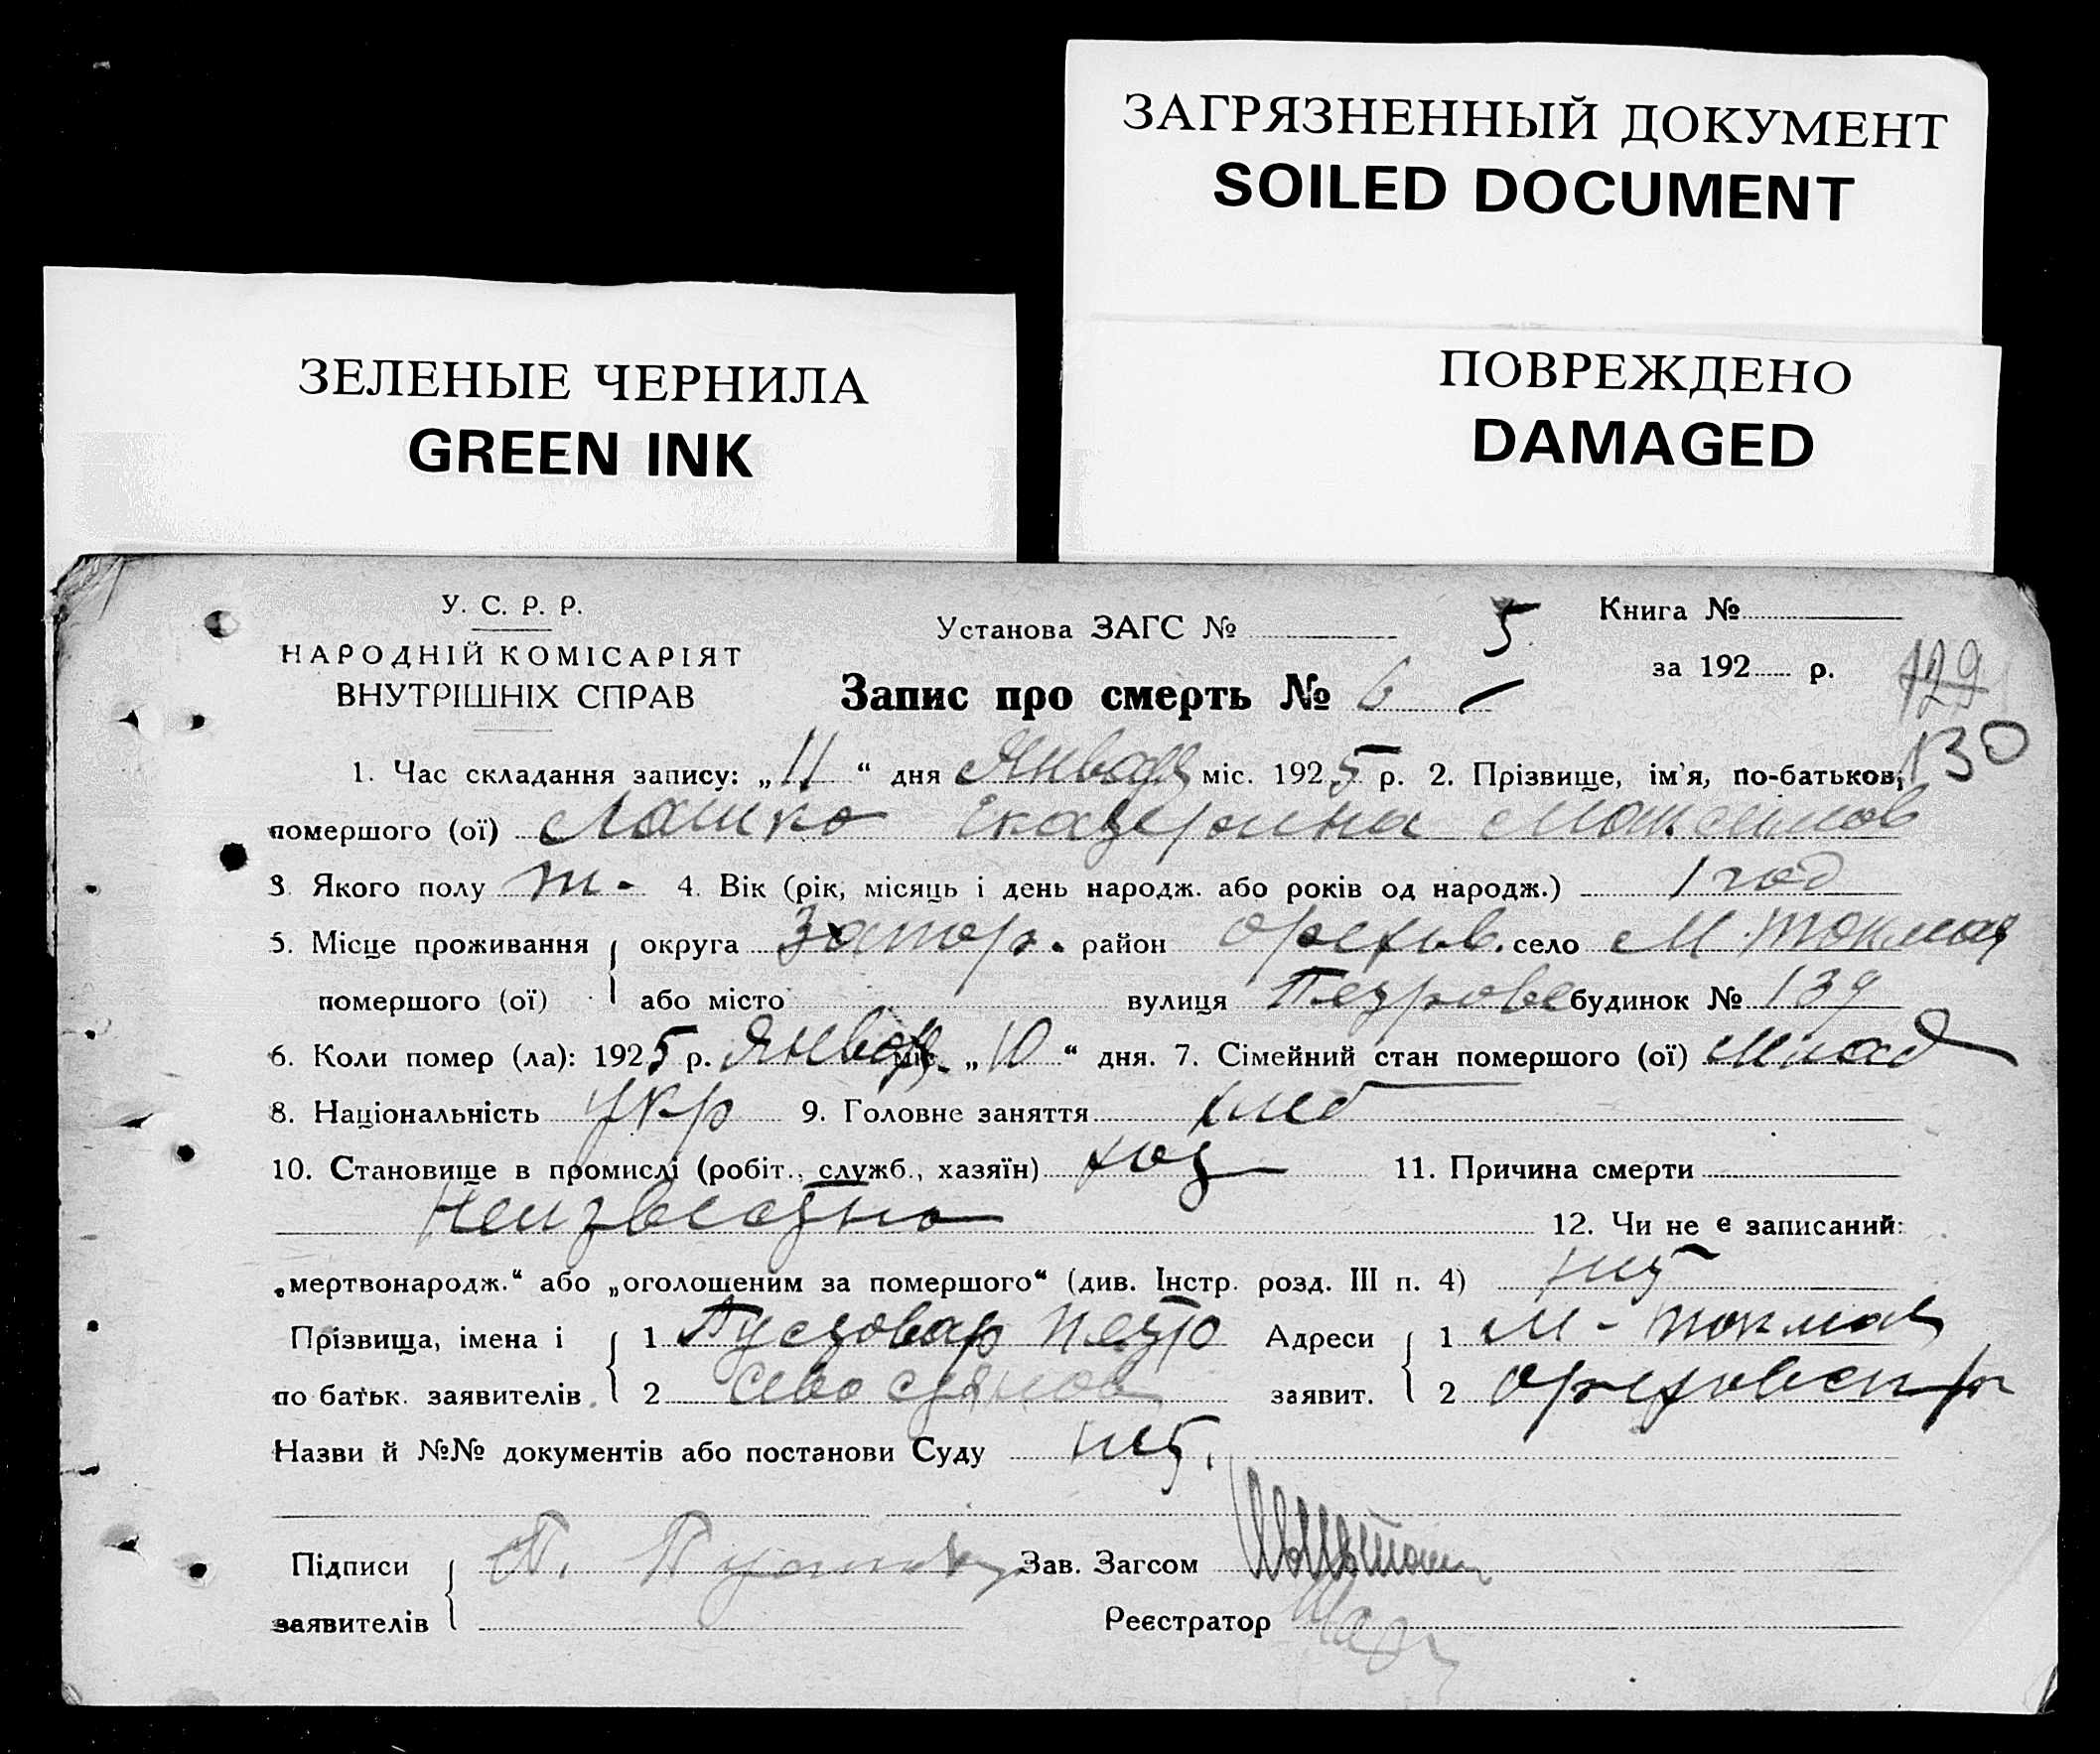 ЗАГРЯЗНЕННЫЙ ДОКУМЕНТ
SOILED DOCUMENT
ЗЕЛЕНЫЕ ЧЕРНИЛА
GREEN INK
ПОВРЕЖДЕНО
DAMAGED
У. С. Р. Р.
НАРОДНІЙ КОМІСАРІЯТ
ВНУТРІШНІХ СПРАВ
Установа ЗАГС №
Книга №
за 192 р.
5
129
130
Запис про смерть № 6
1. Час складання запису: „11“ дня Января міс. 1925 р. 2. Прізвище, ім'я, по-батьков,
помершого (ої) Лашко Екатерина Максимов
3. Якого полу 4. Вік (рік, місяць і день народж. або років од народж.) 1 год
5. Місце проживання округа Запор. район Орехов. село М. Токмак
помершого (ої) або місто вулиця Петрова будинок № 139
6. Коли помер (ла): 1925 р. Января міс. „10“ дня. 7. Сімейний стан помершого (ої) млад
8. Національність Укр 9. Головне заняття хлеб
10. Становище в промислі (робіт., служб., хазяїн) хоз 11. Причина смерти
Неизвестно 12. Чи не є записаний:
„мертвонародж.“ або „оголошеним за помершого“ (див. Інстр. розд. III п. 4) нет
Прізвища, імена і 1 Пустовар Петр Адреси 1 М-Токмак
по батьк. заявителів 2 Севостянов заявит. 2 Ореховск р
Назви й №№ документів або постанови Суду нет.
Підписи П. Зав. Загсом
заявителів Реєстратор